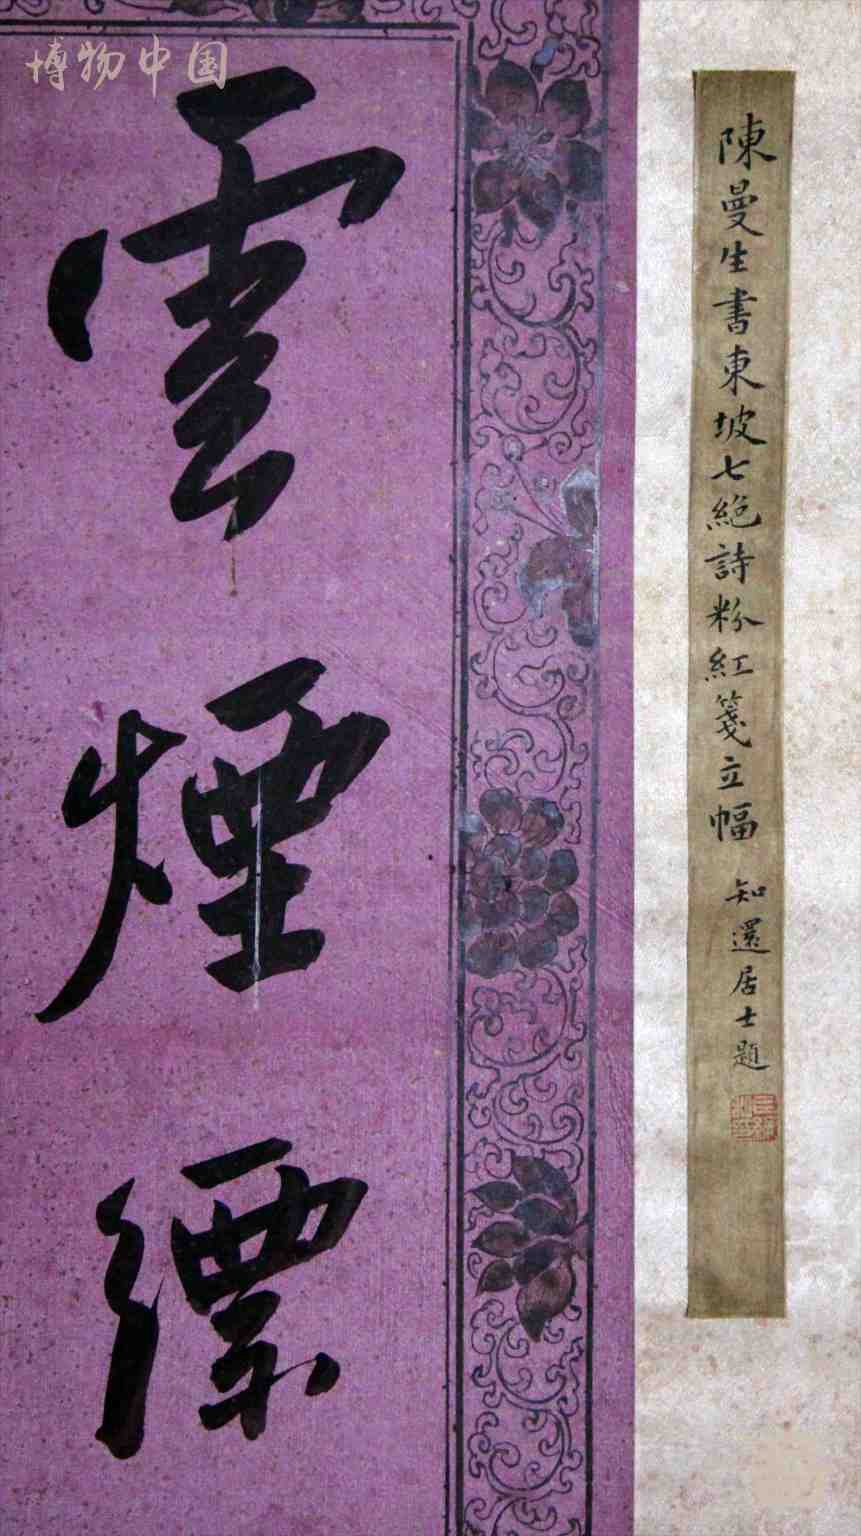 博物中国
陳曼生書東坡七絶詩粉紅箋立幅
知還居士題
雲煙縹